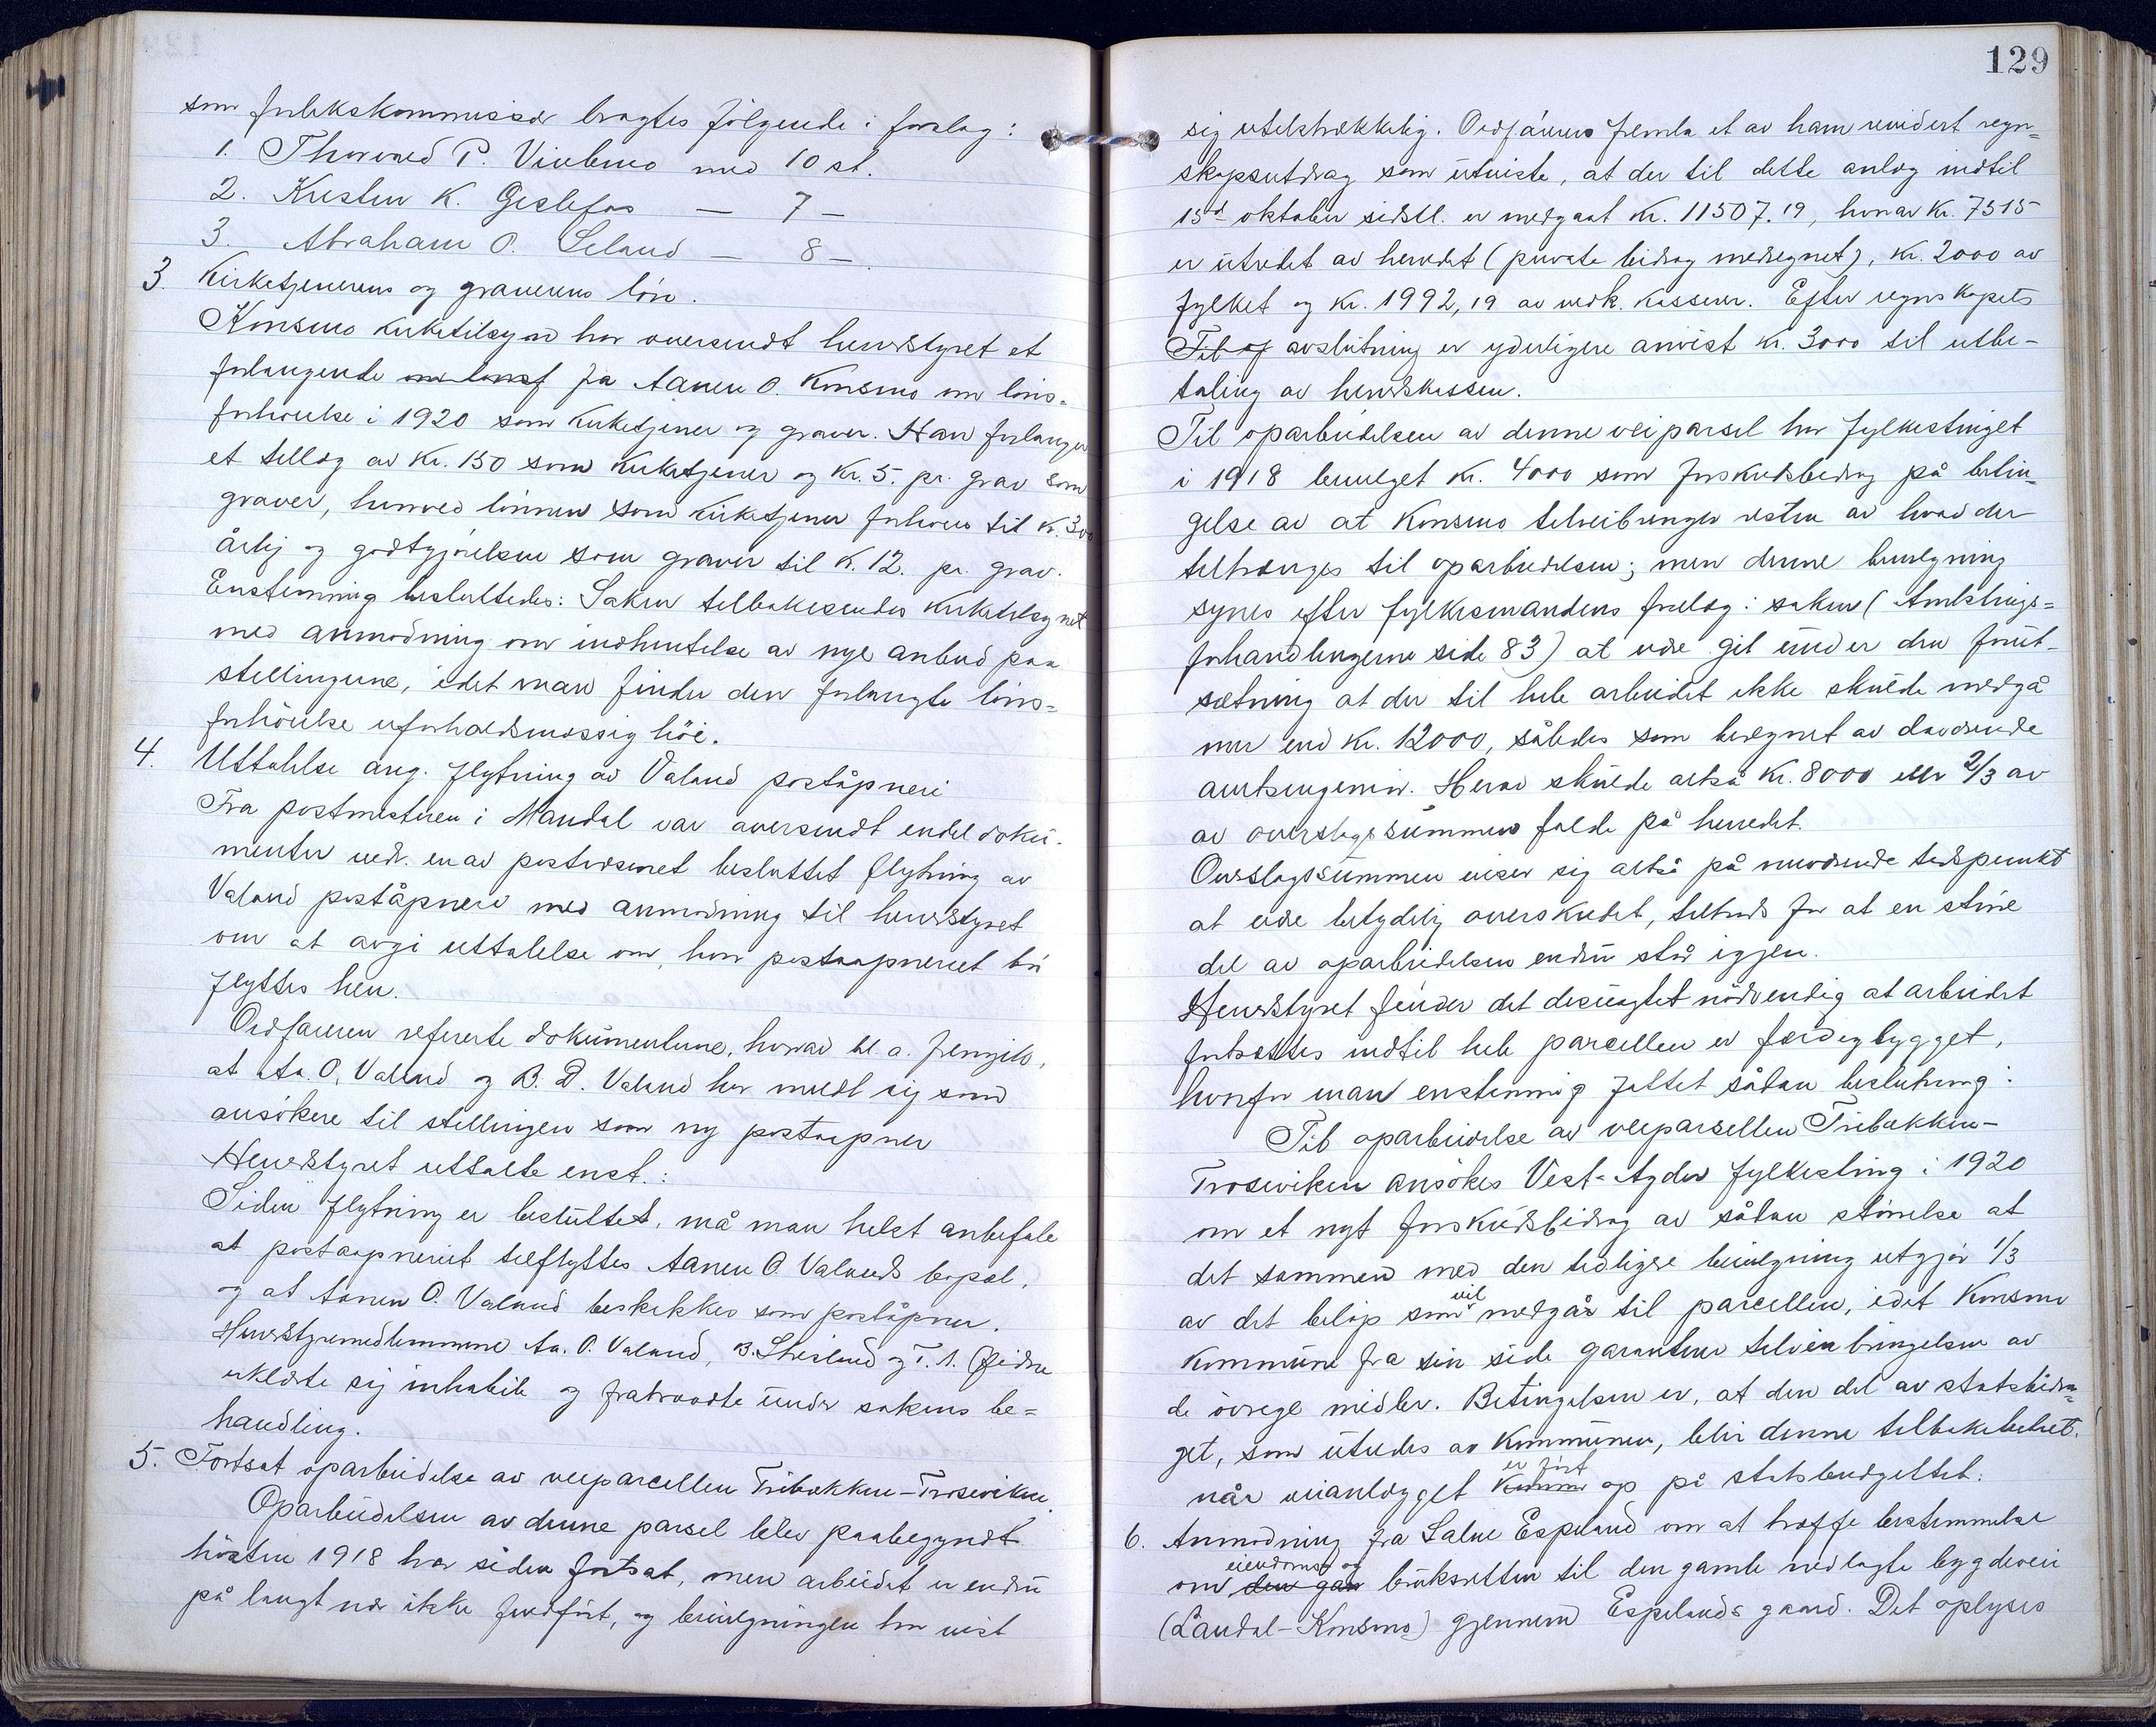 som forlikskommissær bragtes følgende i forslag:
1. Thorvald P. Vivlemo med 10 st.
2. Kristen K. Gislefos — 7 —
3. Abraham O. Seland — 8 —
3. Kirketjenerens og graverens løn.
Konsmo kirketilsyn har oversendt herredstyret et
forlangende fra Aanen O. Konsmo om løns-
forhøielse i 1920 som kirketjener og graver. Han forlanger
et tillæg av kr. 150 som kirketjener og kr. 5. pr. grav som
graver, hvorved lønnen som kirketjener forhøies til kr. 300
årlig og godtgjørelsen som graver til K. 12. pr. grav.
Enstemmig besluttedes: Saken tilbakesendes kirketilsynet
med anmodning om indhentelse av nye anbud paa
stillingene, idet man finder den forlangte løns-
forhøielse uforholdsmæssig høi.
4. Uttalelse ang. flytning av Valand poståpneri
Fra postmesteren i Mandal var oversendt endel doku-
menter vedr. en av postvæsenet besluttet flytning av
Valand poståpneri med anmodning til herredstyret
om at avgi uttalelse om, hvor postaapneriet bør
flyttes hen.
Ordføreren refererte dokumentene, hvorav bl. a. fremgik,
at Aa. O. Valand og B. D. Valand har meldt sig som
ansökere til stillingen som ny postaapner
Herredstyret uttalte enst.:
Siden flytning er besluttet, må man helst anbefale
at postaapneriet tilflyttes Aanen O. Valands bopæl,
og at Aanen O. Valand beskikkes som poståpner.
Herredstyremedlemmene Aa. O. Valand, B. Stusland og T. A. Øidne
erklærte sig inhabile og fratraadte under sakens be=
handling.
5. Fortsat oparbeidelse av veiparcellen Tribakken-Troseviken.
Oparbeidelsen av denne parsel blev paabegyndt
høsten 1918 har siden fortsat, men arbeidet er endnu
på langt nær ikke fuldført, og bevilgningen har vist
129
sig utilstrækkelig. Ordføreren fremla et av ham revidert regn=
skapsutdrag som utviste, at der til dette anlæg indtil
15de oktober sidstl. er medgaat Kr. 11507.19, hvorav Kr. 7515
er utredet av herredet (private bidrag medregnet), kr. 2000 av
fylket og kr. 1992,19 av vedk. kasserer. Efter regnskapets
Til og avslutning er yderligere anvist kr. 3000 til utbe-
taling av herredskassen.
Til oparbeidelsen av denne veiparsel har fylkestinget
i 1918 bevilget kr. 4000 som forskudsbidrag på betin-
gelse av at Konsmo tilveibringer resten av hvad der
tiltrænges til oparbeidelsen; men denne bevilgning
synes efter fylkesmandens forelæg i saken (Amtstings=
forhandlingerne side 83) at være git under den forut-
sætning at der til hele arbeidet ikke skulde medgå
mer end kr. 12000, således som beregnet av daværende
amtsingeniør. Herav skulde altså Kr. 8000 eller 2/3 av
av overslagssummen falde på herredet.
Overslagssummen viser sig altså på nuværende tidspunkt
at være betydelig overskredet, tiltrods for at en större
del av oparbeidelsen endnu står igjen.
Herredstyret finder det desuagtet nødvendig at arbeidet
fortsættes indtil hele parcellen er færdigbygget,
hvorfor man enstemmig fattet sådan beslutning:
Til oparbeidelse av veiparsellen Tribakken-
Troseviken ansøkes Vest-Agder fylkesting i 1920
om et nyt forskudsbidrag av sådan størrelse at
det sammen med den tidligere bevilgning utgjør 1/3
av det beløp som vil medgår til parcellen, idet Konsmo
kommune fra sin side garanterer tilveiebringelsen av
de øvrige midler. Betingelsen er, at den del av statsbidra=
get, som utredes av kommunen, blir denne tilbakebetalt,
når veianlægget er ført op på statsbudgettet.
6. Anmodning fra Salve Espeland om at træffe bestemmelse
om den gam eiendoms og bruksretten til den gamle nedlagte bygdevei
(Laudal-Konsmo) gjennem Espelands gaard. Det oplyses